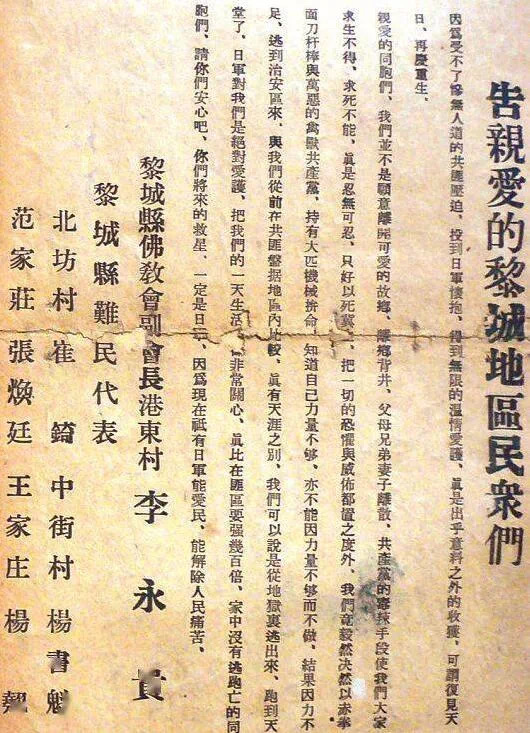 告親愛的黎城地區民衆們
因爲受不了慘無人道的共匪壓迫、投到日軍懷抱、得到無限的溫情愛護、眞是出乎意料之外的收獲、可謂復見天
日、再慶重生、
親愛的同胞們、我們並不是願意離開可愛的故鄉、離鄉背井、父母兄弟妻子離散、共產黨的毒辣手段使我們大家
求生不得、求死不能、眞是忍無可忍、只好以死冀、把一切的恐懼與威佈都置之度外、我們竟毅然决然以赤拳
面刀杆棒與萬惡的禽獸共產黨、持有大匹機械拚命、知道自己力量不够、亦不能因力量不够而不做、結果因力不
足、逃到治安區來、與我們從前在共匪盤据地區內比較、眞有天涯之別、我們可以說是從地獄裏逃出來、跑到天
堂了、日軍對我們是絕對愛護、把我們的一天生活、非常關心、眞比在匪區要强幾百倍、家中沒有逃跑亡的同
胞們、請你們安心吧、你們將來的救星、一定是日軍、因爲現在祗有日軍能愛民、能解除人民痛苦、
黎城縣佛敎會副會長港東村 李 永 貴
黎城縣難民代表
北坊村崔 錡 中街村 楊書魁
范家莊張煥廷 王家庄 楊